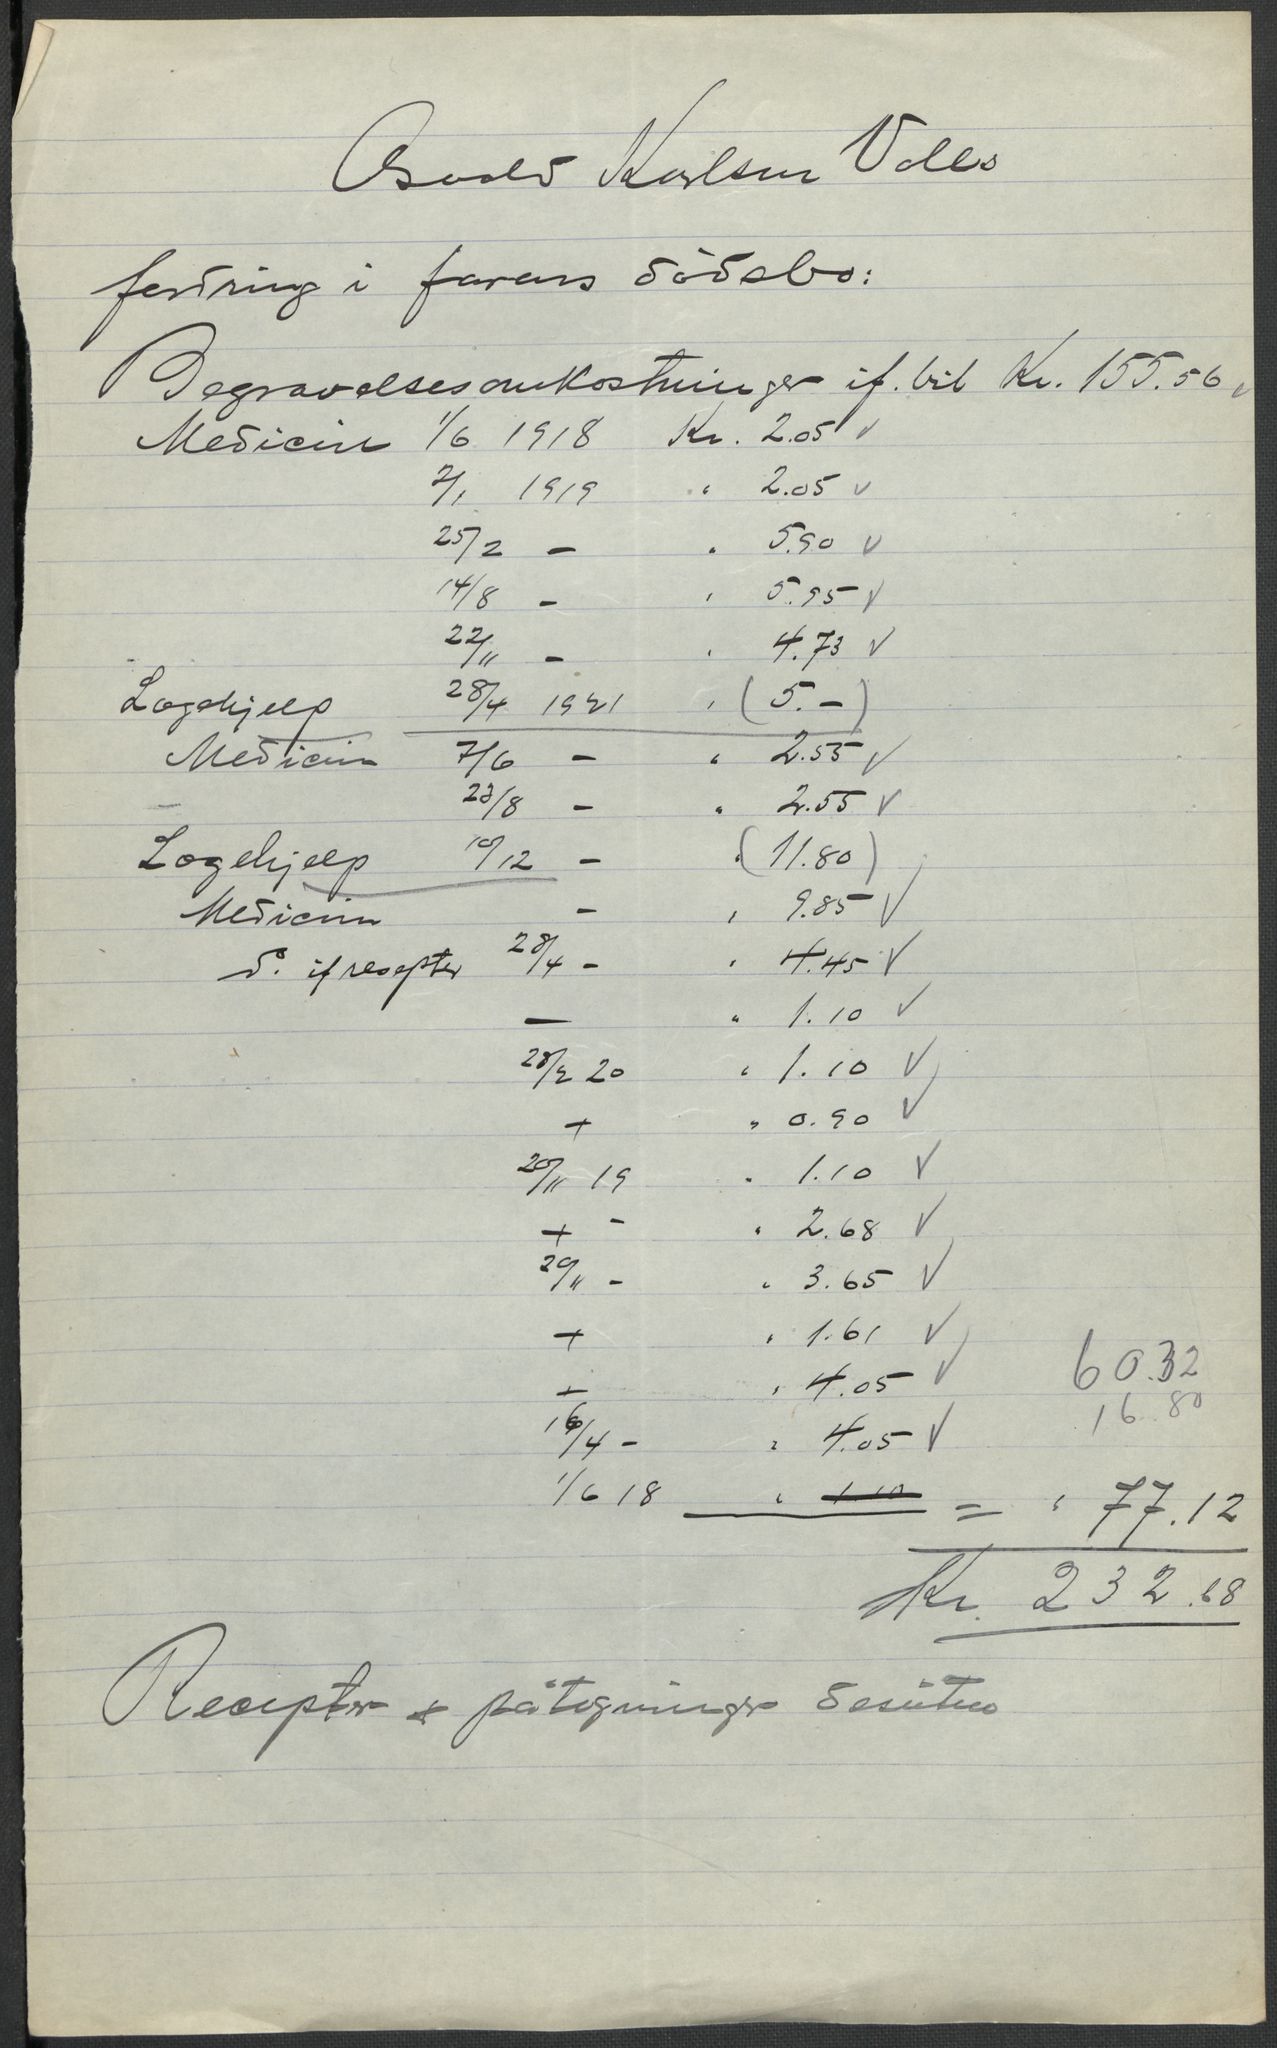 Osvald Karlsen Valles
fordring i farens dödsbo:
Begravelsesomkostninger if. bil Kr. 155.56 ✓
Medicin 1/6 1918 Kr. 2.05 ✓
2/1 1919 " 2.05 ✓
25/2 — " 5.90 ✓
14/8 — " 5.95 ✓
22/11 — " 4.73 ✓
Lægehjelp 28/4 1921 " (5.—)
Medicin 7/6 — " 2.55 ✓
23/8 — " 2.55 ✓
Lægehjelp 10/12 — " (11.80)
Medicin — " 9.85 ✓
do. if recepter 28/4 — " 4.45 ✓
— " 1.10 ✓
28/2 20 " 1.10 ✓
+ " 0.90 ✓
20/11 19 " 1.10 ✓
+ - " 2.68 ✓
29/11 - " 3.65 ✓
+ " 1.61 ✓
+ " 4.05 ✓
60.32
16/4 - " 4.05 ✓
16.80
1/6 18 " 1.10 = " 77.12
Kr. 232.68
Recepter & påtegninger desuten